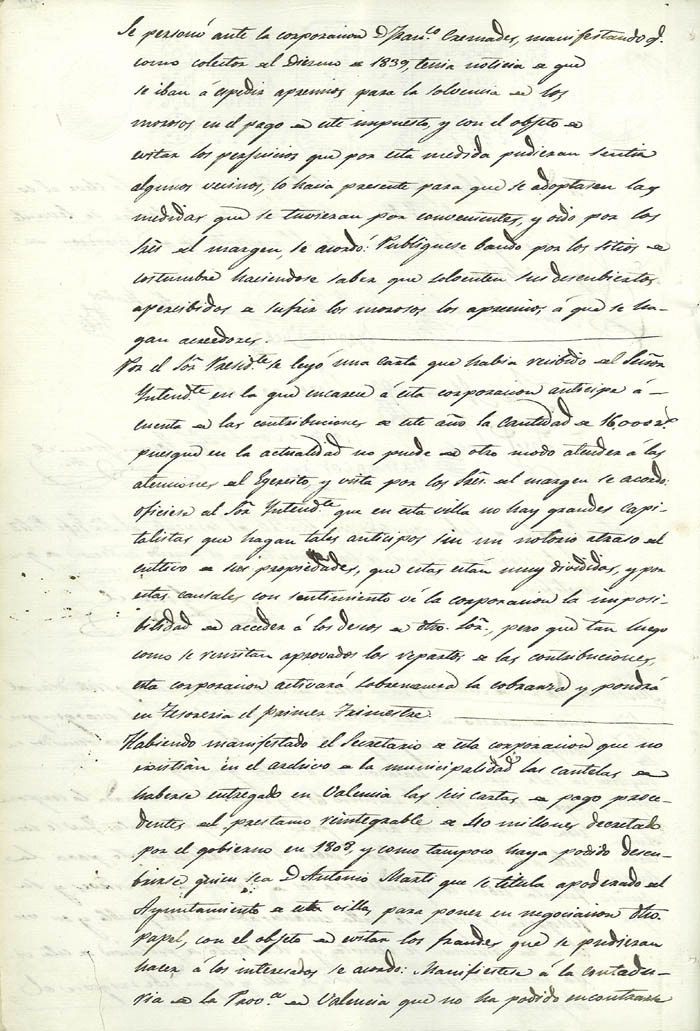 Se personó ante la corporacion D. Fran.co Cremades, manifestando q.
como colector del Diezmo de 1839, tenia noticia de que
se iban á espedir apremios para la solvencia de los
morosos en el pago de este impuesto, y con el objeto de
evitar los perjuicios que por esta medida pudieran sentir
algunos vecinos, lo hacia presente para que se adoptasen las
medidas que se tuvieran por convenientes, y oido por los
Sres. del margen, se acordó: Publiquese bando por los sitios de
costumbre haciendose saber que solventen sus descubiertos
apercibidos de sufrir los morosos los apremios á que se ha-
gan acreedores.
Por el Sor. Presid.te se leyó una carta que habia recibido del Señor
Yntend.te en la que encarece á esta corporacion anticipe á
cuenta de las contribuciones de este año la cantidad de 16,000 r.s
puesque en la actualidad no puede de otro modo atender á las
atenciones del Egercito, y vista por los Sres. del margen se acordó:
oficiese al Sor. Yntend.te que en esta villa no hay grandes capi-
talistas que hagan tales anticipos sin un notorio atraso del
cultivo de sus propiedades, que estas están muy divididas, y por
estas causales con sentimiento vé la corporacion la imposi-
bilidad de acceder á los deseos de dho. Sor., pero que tan luego
como se remitan aprovados los repartos de las contribuciones,
esta corporacion activará sobremanera la cobranza y pondrá
en Tesoreria el primer Trimestre.
Habiendo manifestado el Secretario de esta corporacion que no
existian en el archivo de la municipalidad las cautelas de
haberse entregado en Valencia las seis cartas de pago proce-
dentes del prestamo reintegrable de 40 millones decretado
por el gobierno en 1808, y como tampoco haya podido descu-
brirse quien sea D. Antonio Marti que se titula apoderado del
Ayuntamiento de esta villa, para poner en negociacion dho.
papel, con el objeto de evitar los fraudes que se pudieran
hacer á los interesados se acordó: Manifiestese á la contadu-
ria de la Prov.a de Valencia que no ha podido encontrarse